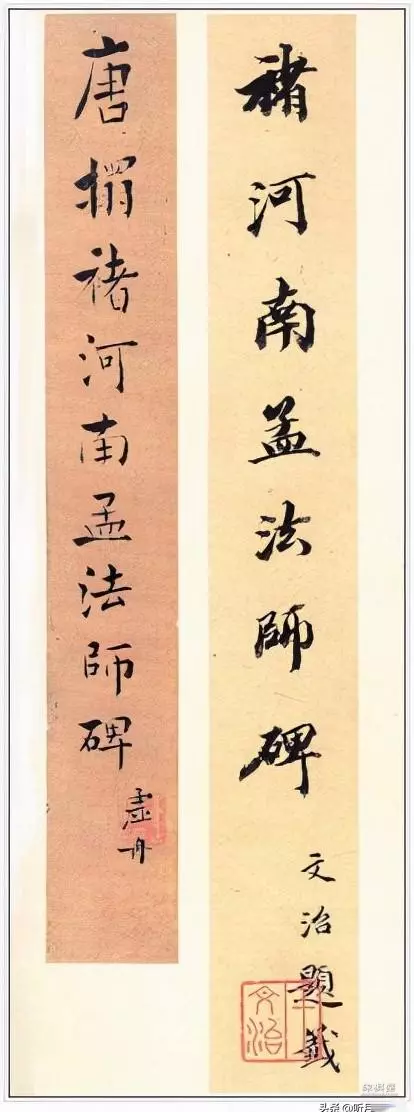 褚河南孟法師碑
文治題籤
文治
唐搨褚河南孟法師碑
虛舟
头条@听月